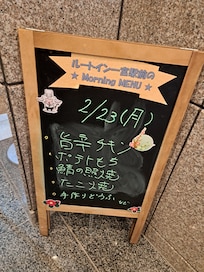 ルートイン一宮駅前の
★ Morning MENU ★
2/23(月)
旨辛チキン
• ポテトもち
• 鯖の照焼
• たこ焼
• 手作りどうふ など